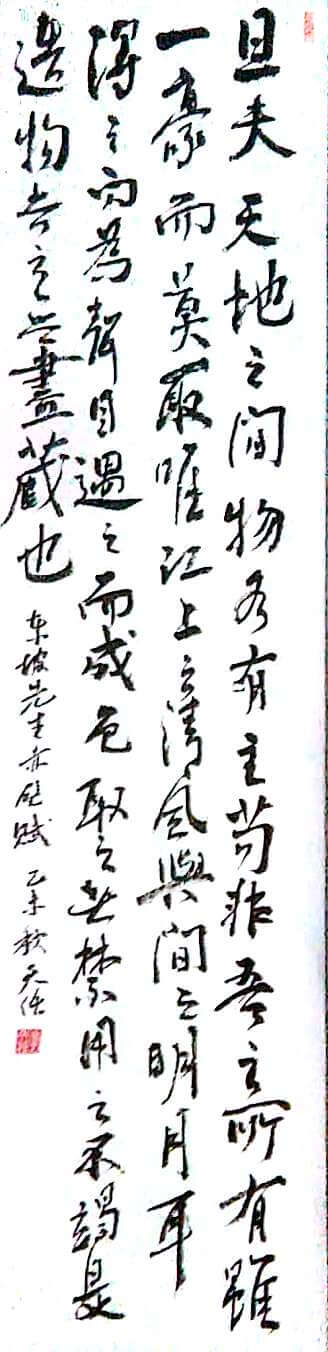 且夫天地之間物各有主苟非吾之所有雖
一豪而莫取唯江上之清風與間之明月耳
得之而為聲目遇之而成色取之無禁用之不竭是
造物者之無盡藏也
东坡先生赤壁賦 乙未秋天